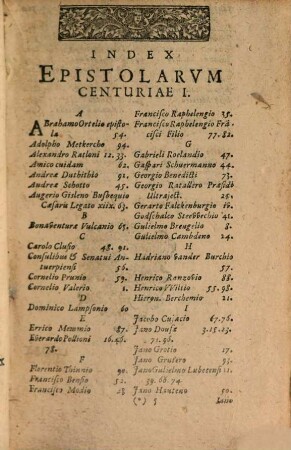 INDEX
EPISTOLARVM
CENTURIAE I.
A
ABrahamo Ortelio episto-
la 54.
Adolpho Metkercho 94.
Alexandro Ratloni 12. 33.
Amico cuidam 62.
Andreæ Duthithio 91.
Andreæ Schotto 45.
Augerio Gisleno Busbequio
Cæsaris Legato xiix. 63.
B
Bonaventuræ Vulcanio 65.
C
Carolo Clusio 48. 92.
Consulibus & Senatui An-
tuerpiensi 56.
Cornelio Prunio 59.
Cornelio Valerio 1.
D
Dominico Lampsonio 60
E
Errico Memmio 87.
Everardo Pollioni 16. 46.
78.
F
Florentio Toinnio 90.
Francisco Bensio 52.
Francisco Modio
Francisco Raphelengio 25.
Francisco Raphelengio Frã-
cisci Filio 77. 82.
G
Gabrieli Roelandio 47.
Gaspari Schuermanno 44.
Georgio Benedicti 73.
Georgio Ratallero Præsidi
Ultraject. 2.
Gerarto Falckenburgio 6.
Godschalco Stevvechio 41.
Gulielmo Breugelio 8.
Gulielmo Cambdeno 24.
H
Hadriano vander Burchio
57.
Henrico Ranzovio 88.
Henrico VVltio 55. 98.
Hieron. Berchemio 21.
I
Jacobo Cujacio 67. 76.
Jano Dousæ 3. 15. 23.
71. 96.
Jano Grotio 17.
Jano Grutero 93.
Jano Gulielmo 11.
39. 68. 74
Jano Hauteno 50.
(*)